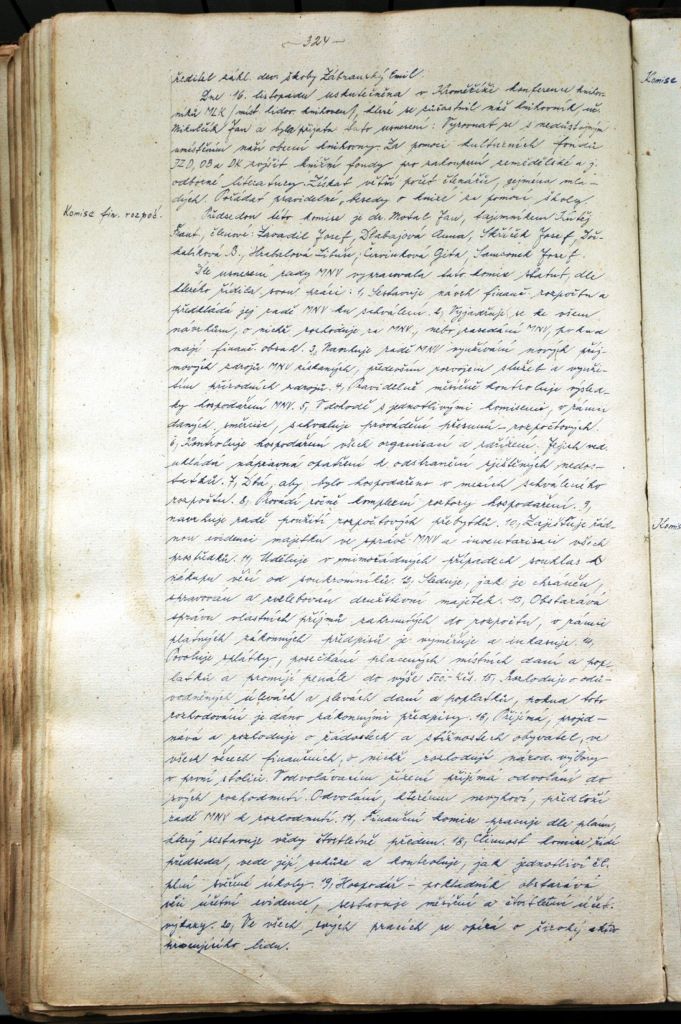 - 324 -
ředitel zákl. dev. školy Zábranský Emil.
Dne 16. listopadu uskutečněna v Kroměříži konference knihov-
níků MLK /míst. lidov. knihoven/, které se zúčastnil náš knihovník uč.
Mikulčík Jan a byla přijata tato usnesení: Vyrovnat se s nedůstojným
umístěním naší obecní knihovny. Za pomoci kulturních fondů
JZD, OB a DK zvýšit knižní fondy po zakoupení zemědělské a j.
odborné literatury. Získat větší počet čtenářů, zejména mla-
dých. Pořádat pravidelné besedy o knize za pomoci školy.
Komise fin. rozpoč.
Předsedou této komise je dr. Motal Jan, tajemníkem Krátký
Frant., členové: Zavadil Josef, Dlabajová Anna, Skříček Josef,
B., Hrabalová Libuše, Červinková Géta, Samsonek Josef.
Dle usnesení rady MNV vypracovala tato komise statut, dle
kterého řídila svou práci: 1, Sestavuje návrh finanč. rozpočtu a
předkládá jej radě MNV ku schválení. 2, Vyjadřuje se ke všem
návrhům, o nichž rozhoduje ra MNV, nebo zasedání MNV, pokud
mají finanč. obsah. 3, Navrhuje radě MNV využívání nových příj-
mových zdrojů MNV získaných, především rozvojem služeb a využi-
tím přírodních zdrojů. 4, Pravidelně měsíčně kontroluje výsled-
ky hospodaření MNV. 5, V dohodě s jednotlivými komisemi, v rámci
daných směrnic, schvaluje provádění přesunů rozpočtových.
6, Kontroluje hospodaření všech organisací a zařízení. Jejich ved.
ukládá nápravná opatření k odstranění zjištěných nedos-
tatků. 7, Dbá, aby bylo hospodařeno v mezích schváleného
rozpočtu. 8, Provádí ročně komplexní rozbory hospodaření. 9,
navrhuje radě použití rozpočtových přebytků. 10, Zajišťuje řád-
nou evidenci majetku ve správě MNV a inventarisaci všech
prostředků. 11, Uděluje v mimořádných případech souhlas k
nákupu věcí od soukromníků. 12, Sleduje, jak je chráněn,
spravován a zvelebován družstevní majetek. 13, Obstarává
správu vlastních příjmů zahrnutých do rozpočtu, v rámci
platných zákonných předpisů je vyměřuje a inkasuje. 14,
Povoluje splátky, posečkání placených místních daní a pop-
latků a promíjí penále do výše 500.- Kčs. 15, Rozhoduje o odů-
vodněných úlevách a slevách daní a poplatků, pokud toto
rozhodování je dáno zákonnými předpisy. 16, Přijímá, projed-
nává a rozhoduje o žádostech a stížnostech obyvatel, ve
všech věcech finančních, o nichž rozhodují národ. výbory
v první stolici. V odvolávacím řízení přijímá odvolání do
svých rozhodnutí. Odvolání, kterému nevyhoví, předloží
radě MNV k rozhodnutí. 17, Finanční komise pracuje dle plánu,
který sestavuje vždy čtvrtletně předem. 18, Činnost komise řídí
předseda, vede její schůze a kontroluje, jak jednotliví čl.
plní svěřené úkoly. 19, Hospodář - pokladník obstarává
věci účetní evidence, sestavuje měsíční a čtvrtletní účet.
výkazy. 20, Ve všech svých pracích se opírá o široký aktiv
pracujícího lidu.
Komise
Komise